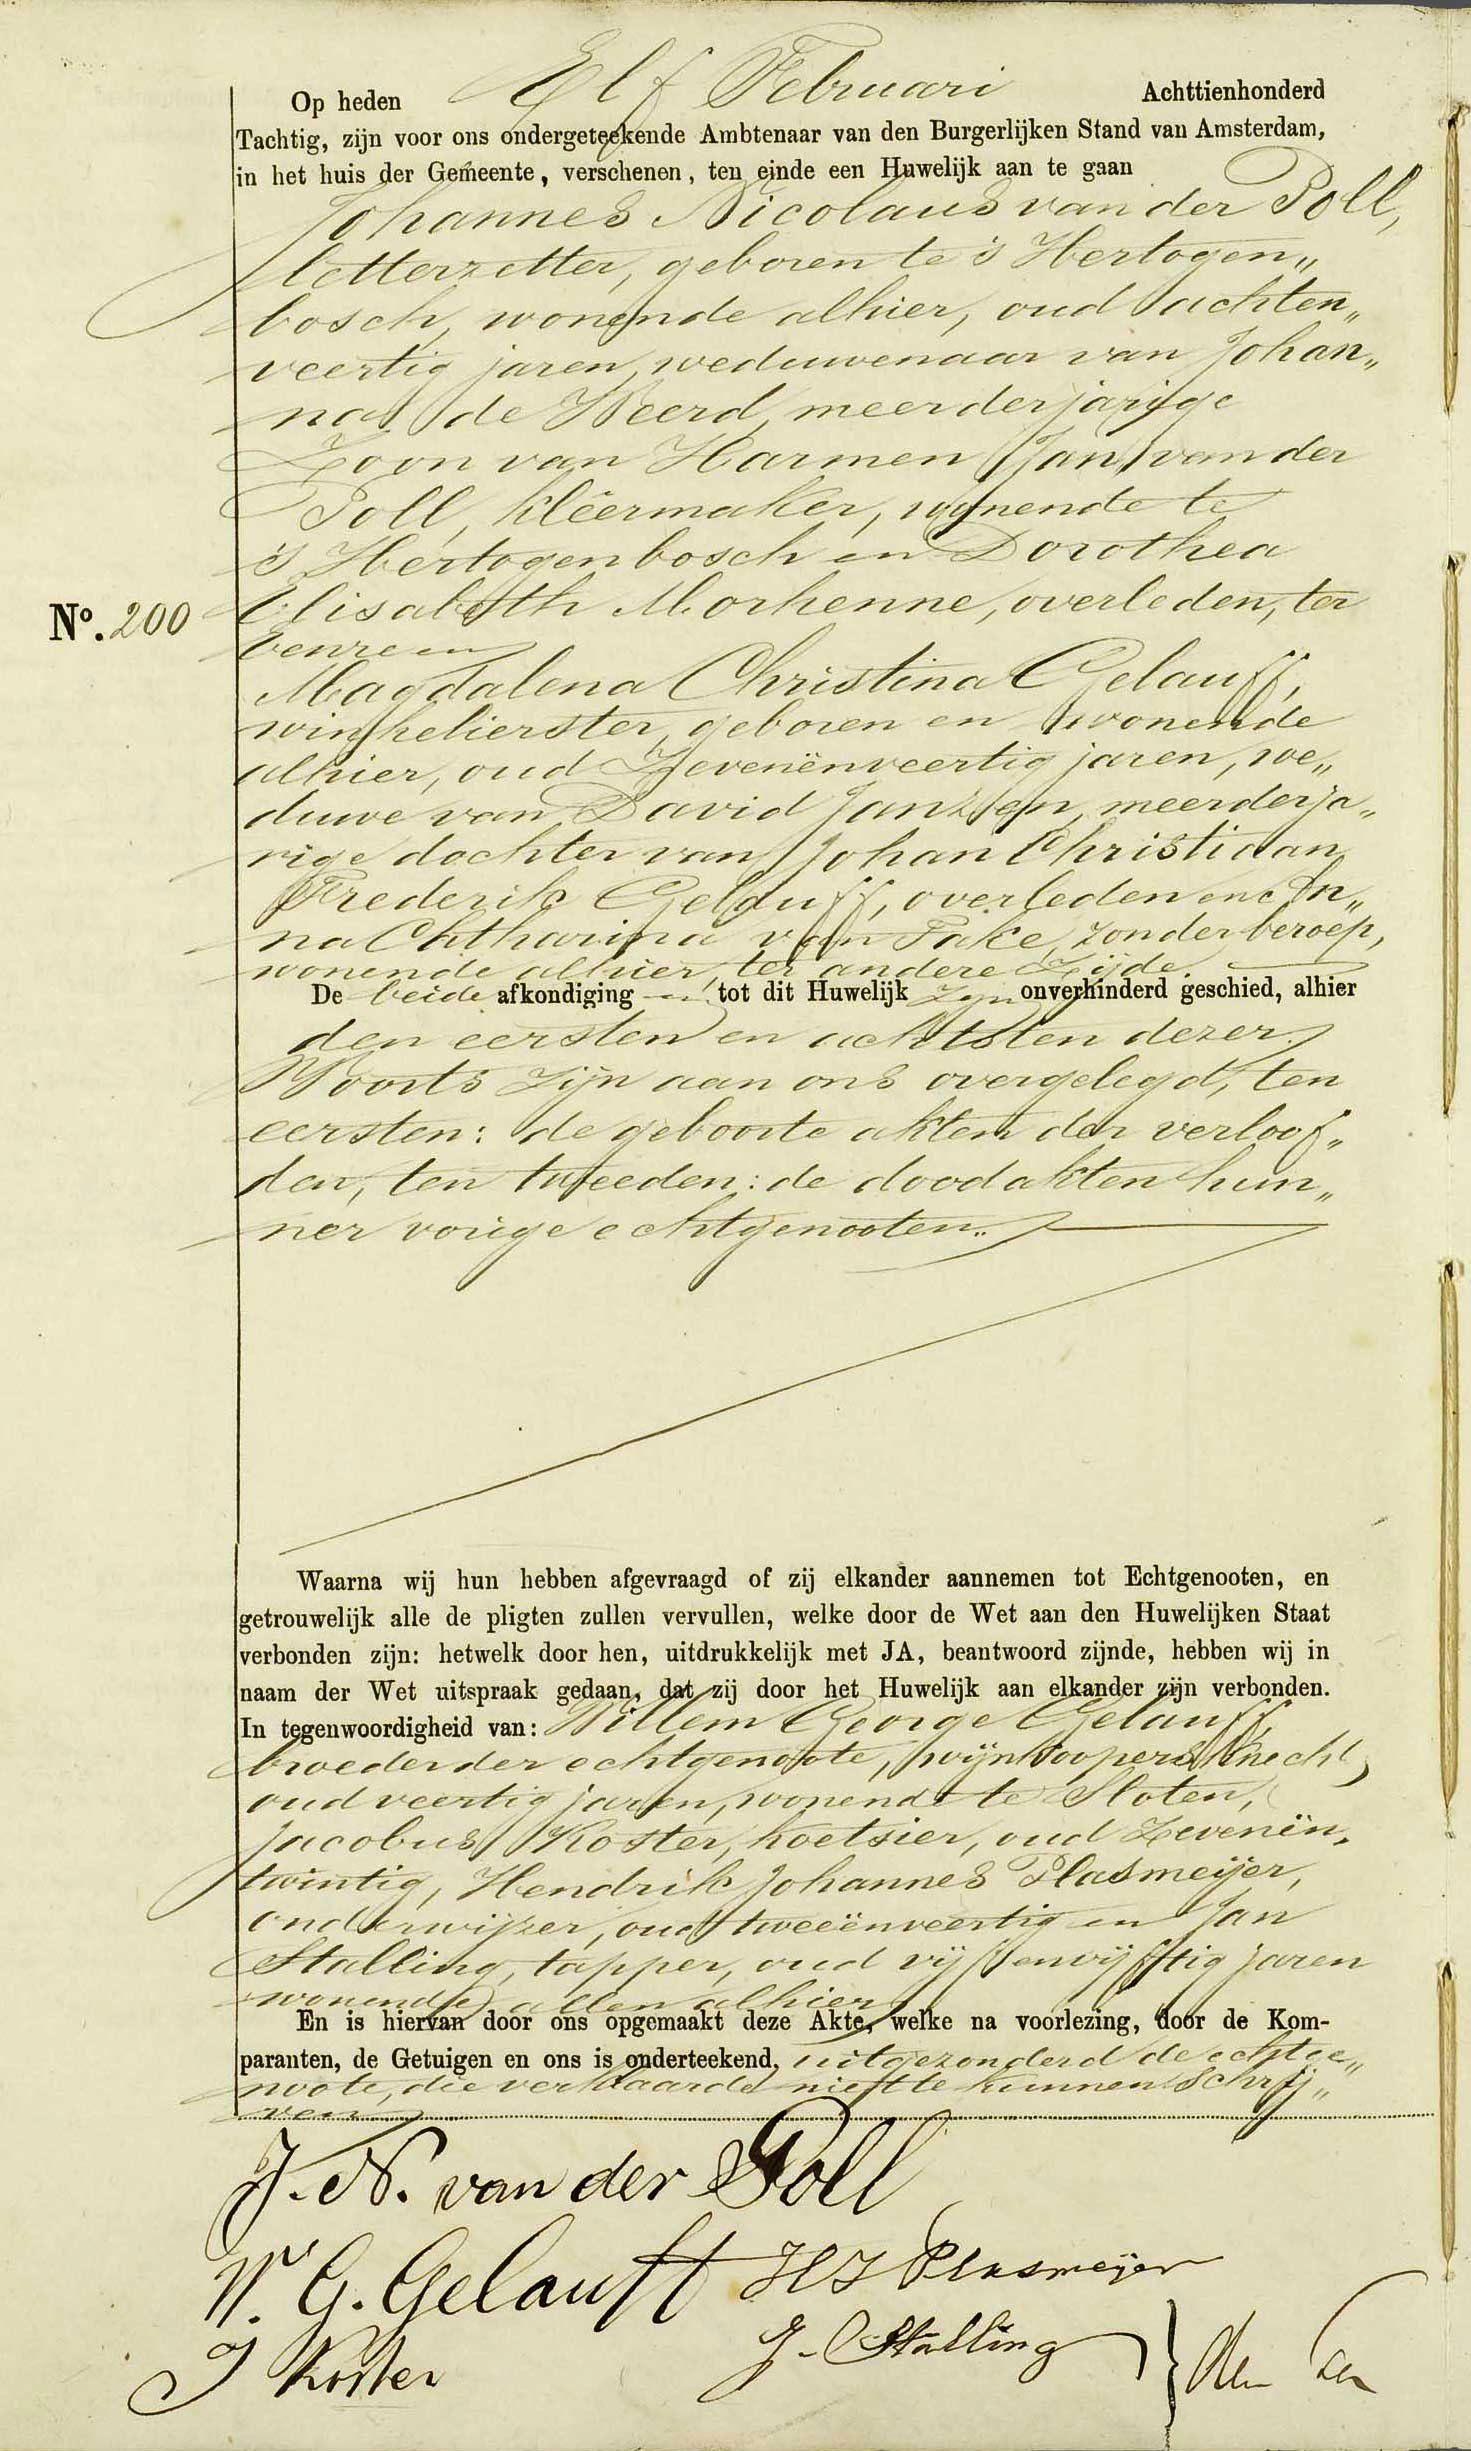 Op heden Elf Februari Achttienhonderd
Tachtig, zijn voor ons ondergeteekende Ambtenaar van den Burgerlijken Stand van Amsterdam,
in het huis der Gemeente, verschenen, ten einde een Huwelijk aan te gaan
Johannes Nicolaus van der Poll,
letterzetter, geboren te 's Hertogen„
bosch, wonende alhier, oud achten„
veertig jaren, weduwenaar van Johan„
na de Weerd, meerderjarige
Zoon van Harmen Jan van der
Poll, kléermaker, wonende te
's Hertogenbosch en Dorothea
Elisabeth Morhenne, overleden, ter
eenre en
No. 200
Magdalena Christina Gelauff,
winkelierster, geboren en wonende
alhier, oud Zevenënveertig jaren, we„
duwe van David Janzen, meerderja„
rige dochter van Johan Christiaan
Frederik Gelauff, overleden en An„
na Catharina van Take, zonder beroep,
wonende alhier, ter andere Zijde.
De beide afkondiging en tot dit Huwelijk zijn onverhinderd geschied, alhier
den eersten en achtsten dezer.
Voorts zijn aan ons overgelegd, ten
eersten: de geboorte akten der verloof„
den, ten tweeden: de doodakten hun„
ner vorige echtgenooten.
Waarna wij hun hebben afgevraagd of zij elkander aannemen tot Echtgenooten, en
getrouwelijk alle de pligten zullen vervullen, welke door de Wet aan den Huwelijken Staat
verbonden zijn: hetwelk door hen, uitdrukkelijk met JA, beantwoord zijnde, hebben wij in
naam der Wet uitspraak gedaan, dat zij door het Huwelijk aan elkander zijn verbonden.
In tegenwoordigheid van: Willem George Gelauff,
broeder der echtgenoote, wijnkoopersknecht,
oud veertig jaren, wonende te Sloten,
Jacobus Koster, koetsier, oud Zevenën„
twintig, Hendrik Johannes Plasmeijer,
onderwijzer, oud tweeënveertig en Jan
Stalling, tapper, oud vijfenvijftig jaren
wonende allen alhier
En is hiervan door ons opgemaakt deze Akte, welke na voorlezing, door de Kom-
paranten, de Getuigen en ons is onderteekend, uitgezonderd de echtge„
noote, die verklaarde niet te kunnen schrij„
ven
J. N. van der Poll
W. G. Gelauff H J Plasmeijer
J Koster J. Stalling